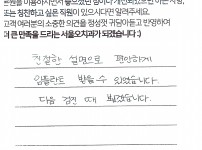 또는 칭찬하고 싶은 직원이 있으시다면 알려주세요.
고객 여러분의 소중한 의견을 정성껏 귀담아듣고 반영하여
더 큰 만족을 드리는 서울오치과가 되겠습니다 :)
친절한 설명으로 편안하게
임플란트 받을 수 있었습니다.
다음 검진 때 뵙겠습니다.